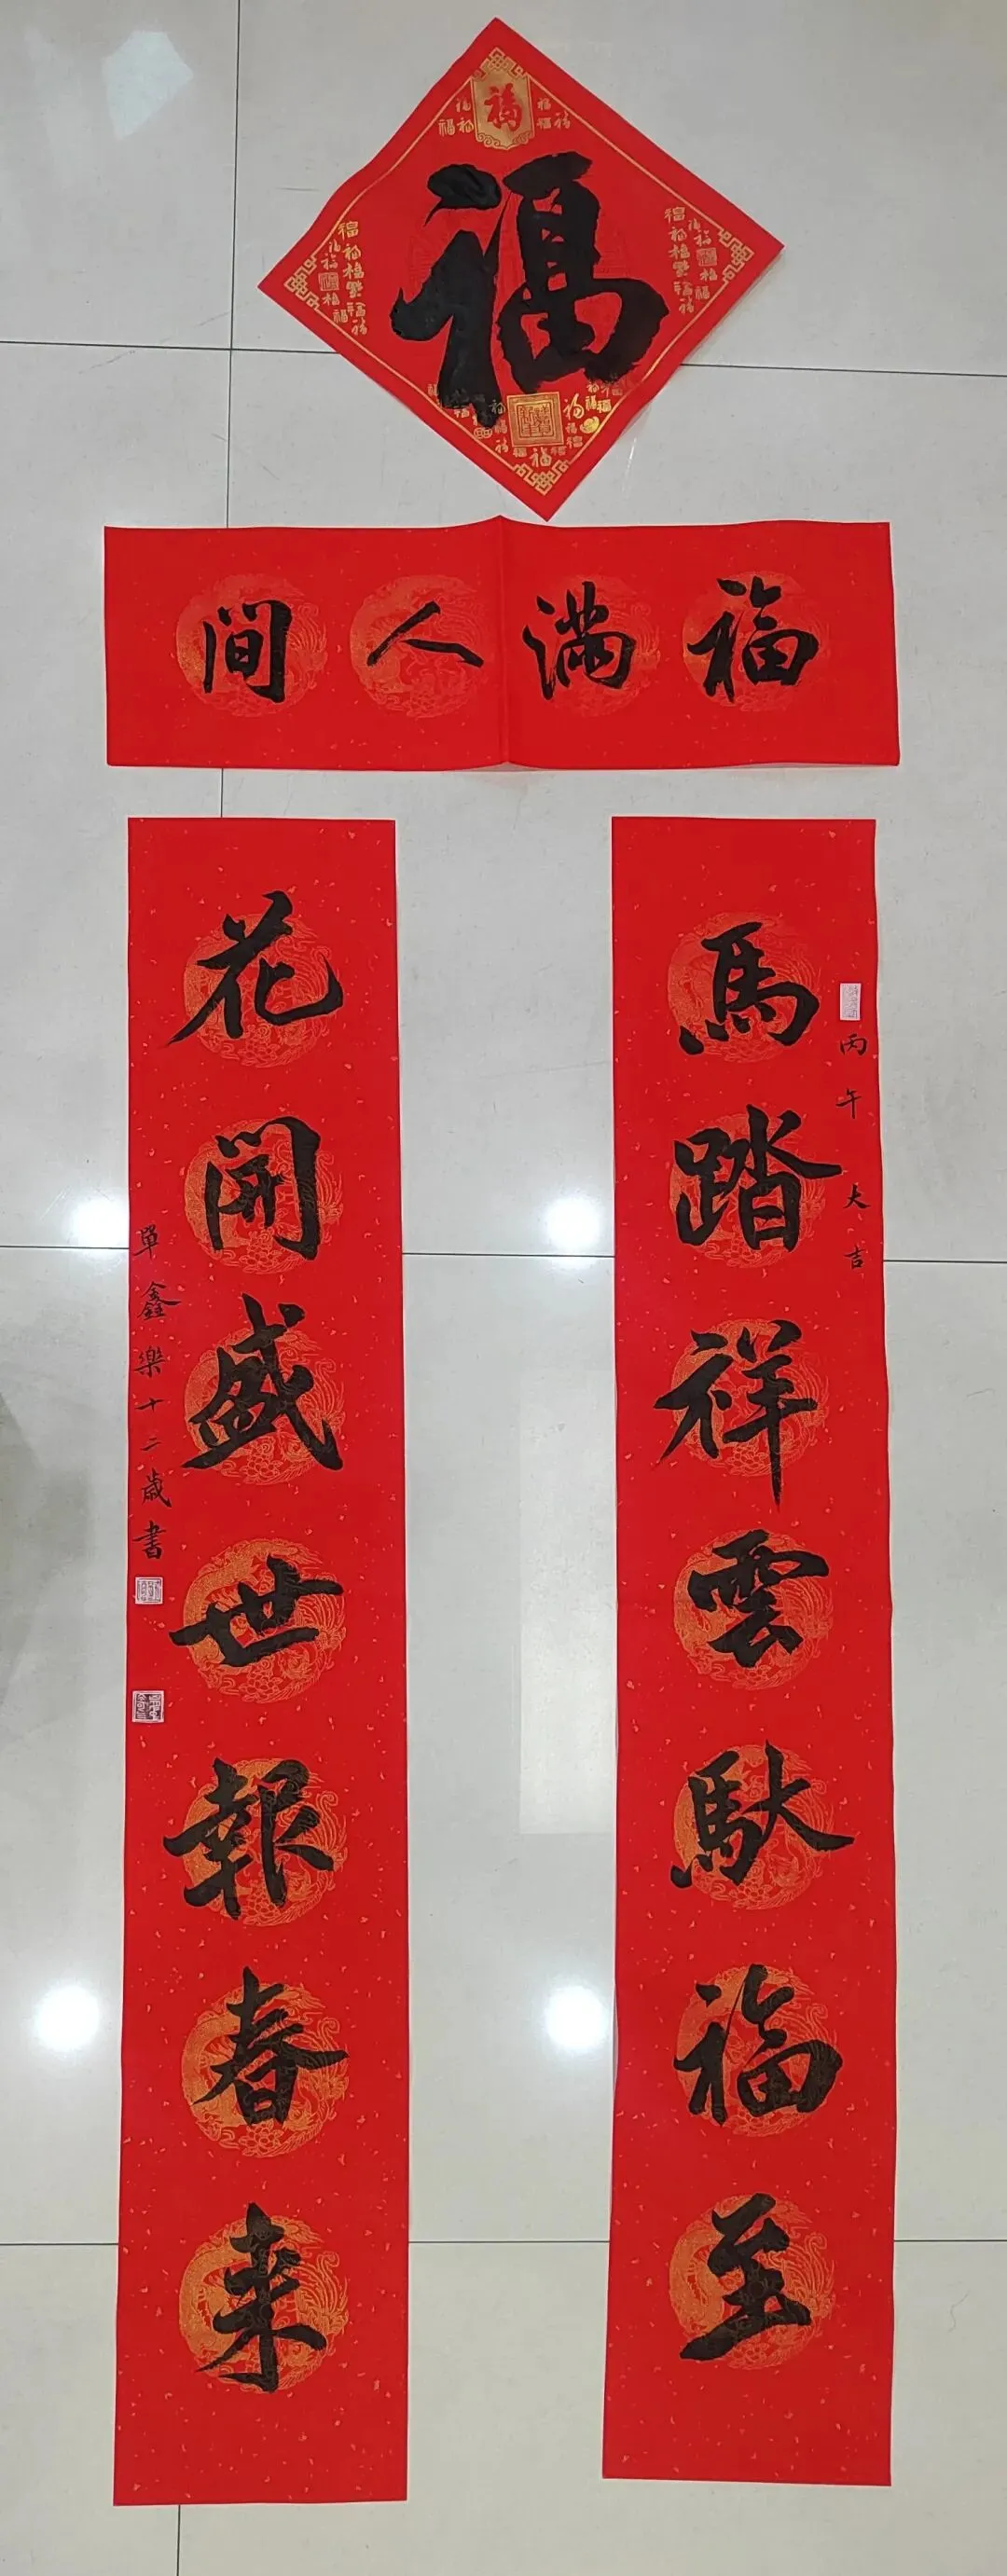 福
福满人间
馬踏祥雲馱福至
丙午大吉
花開盛世報春来
單鑫樂十二歲書